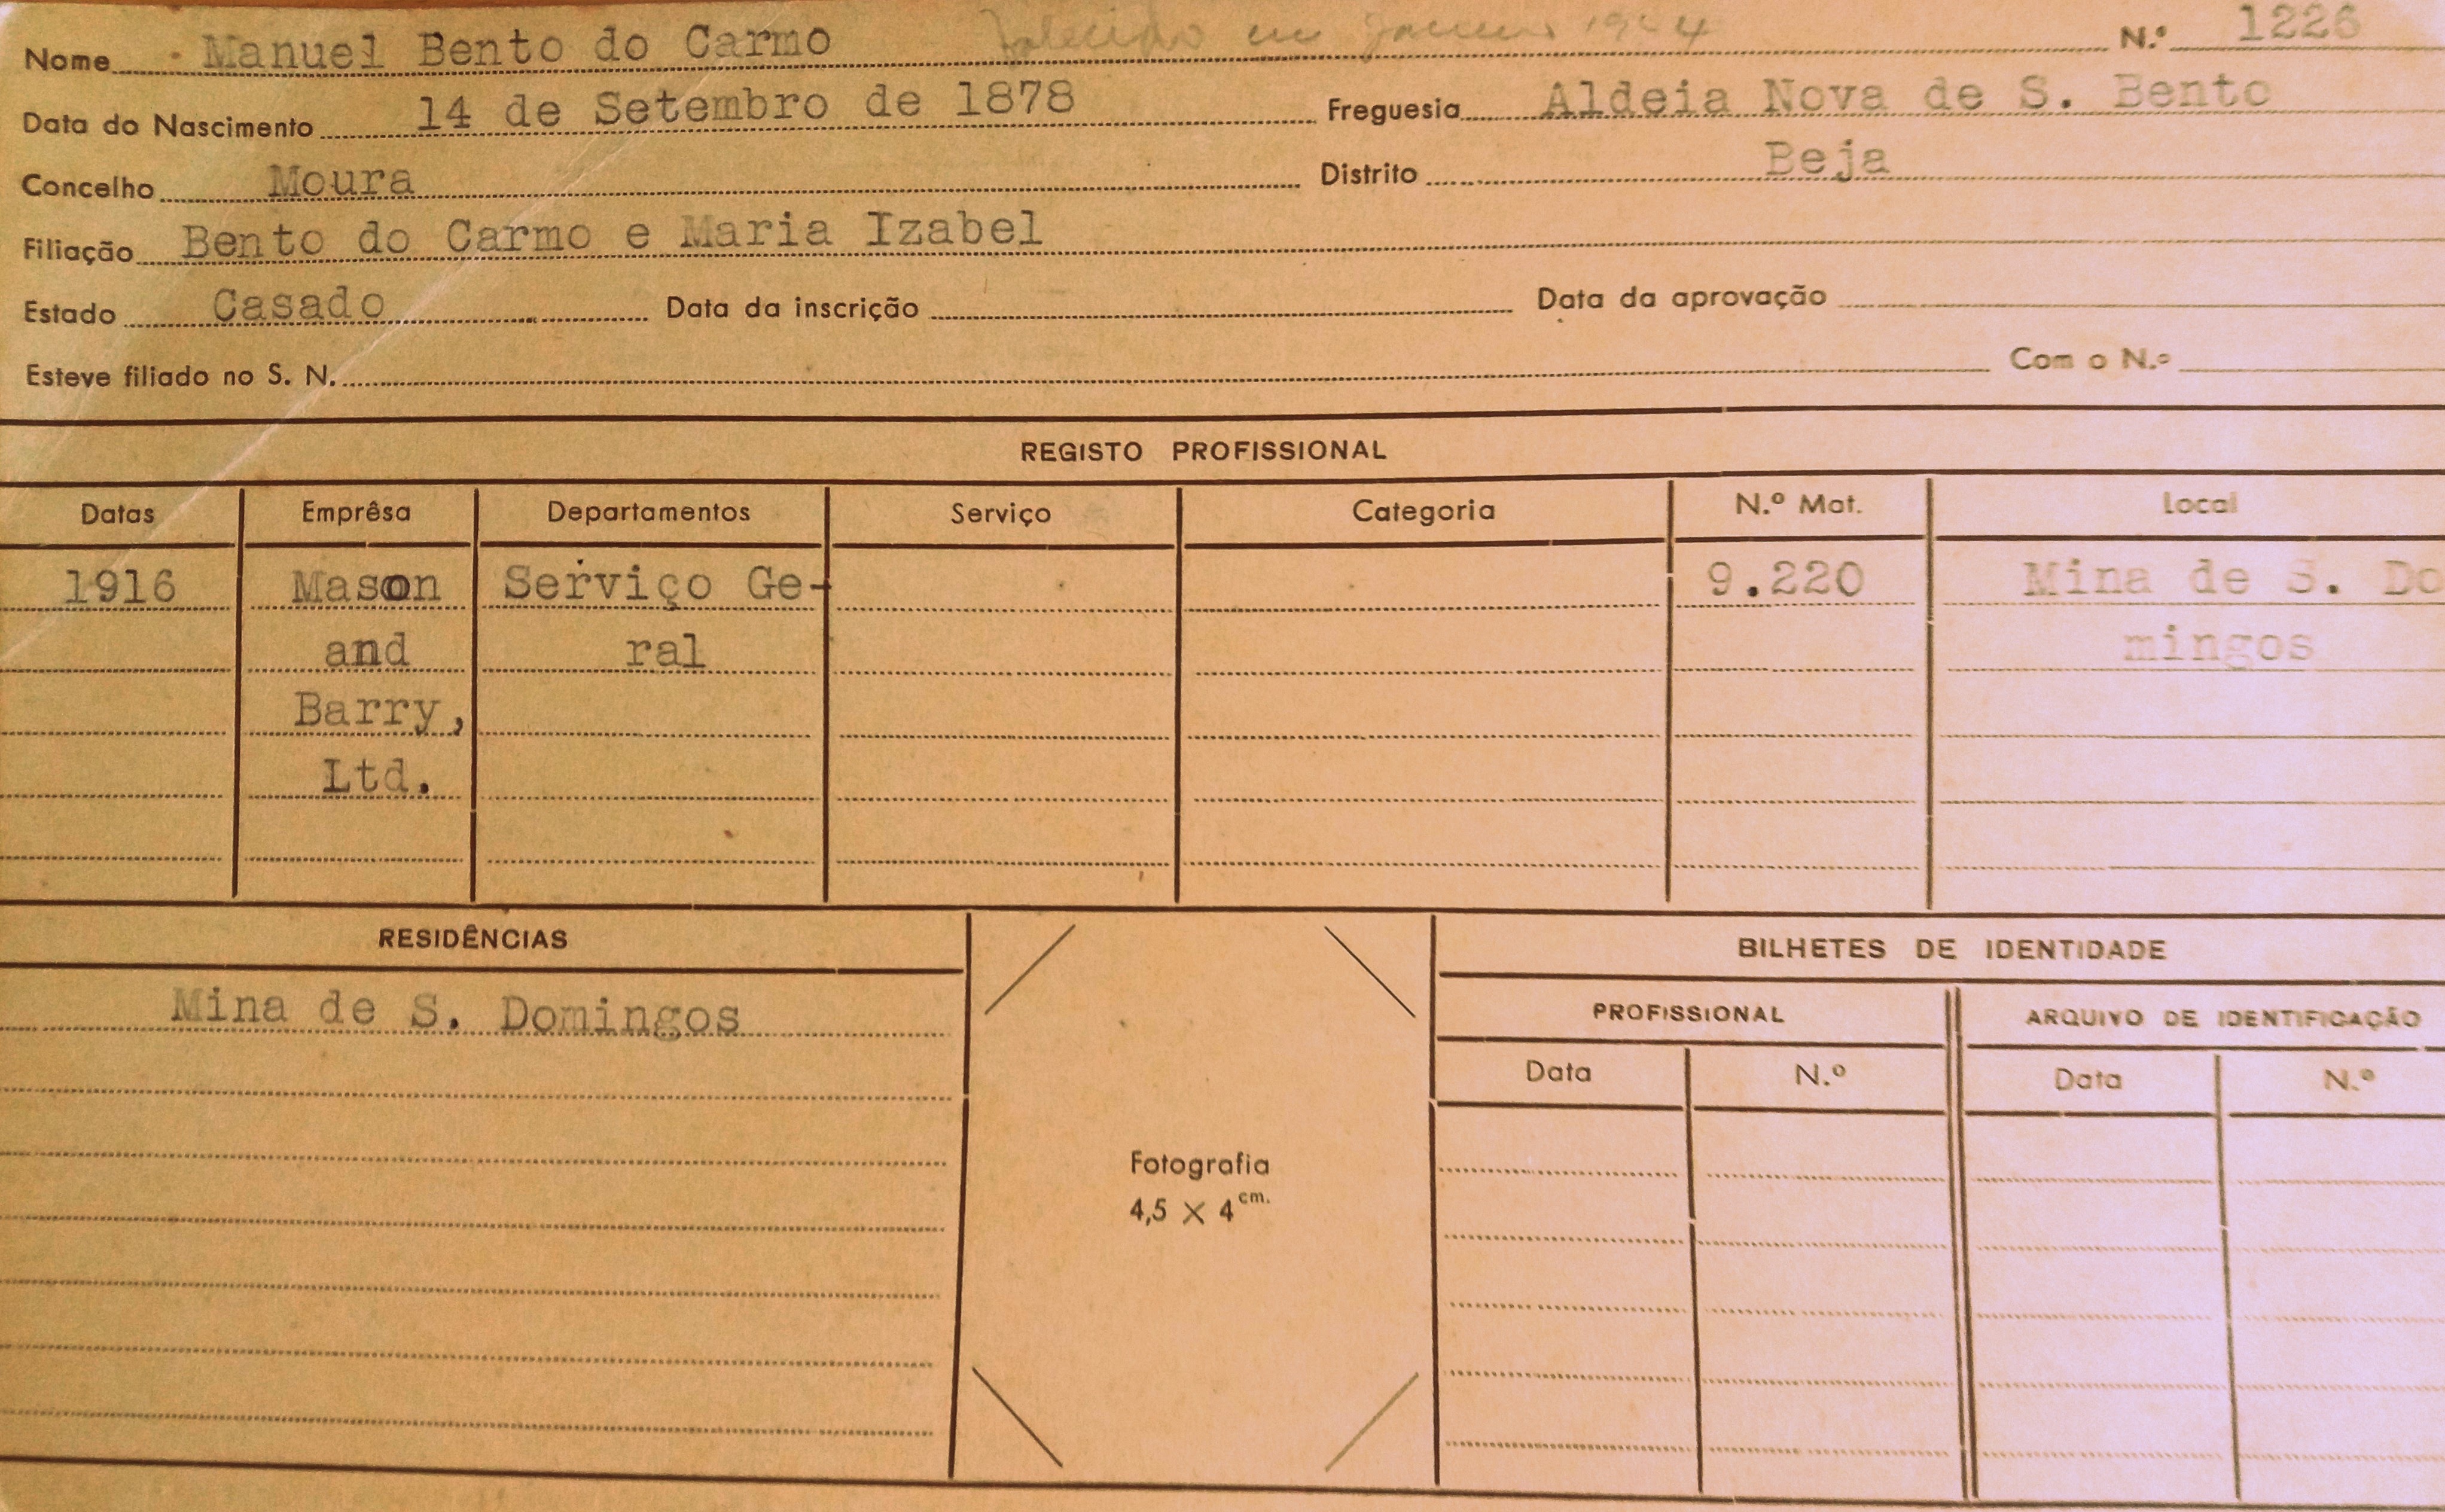 Nome Manuel Bento do Carmo Falecido em Janeiro N.º 1226
Data do Nascimento 14 de Setembro de 1878 Freguesia Aldeia Nova de S. Bento
Concelho Moura Distrito Beja
Filiação Bento do Carmo e Maria Izabel
Estado Casado Data da inscrição Data da aprovação
Esteve filiado no S. N. Com o N.º
REGISTO PROFISSIONAL
Datas Emprêsa Departamentos Serviço Categoria N.º Mat. Local
1916 Mason Serviço Ge- 9.220 Mina de S. Do
and ral mingos
Barry,
Ltd.
RESIDÊNCIAS BILHETES DE IDENTIDADE
Mina de S. Domingos PROFISSIONAL ARQUIVO DE IDENTIFICAÇÃO
Data N.º Data N.º
Fotografia
4,5 × 4 cm.